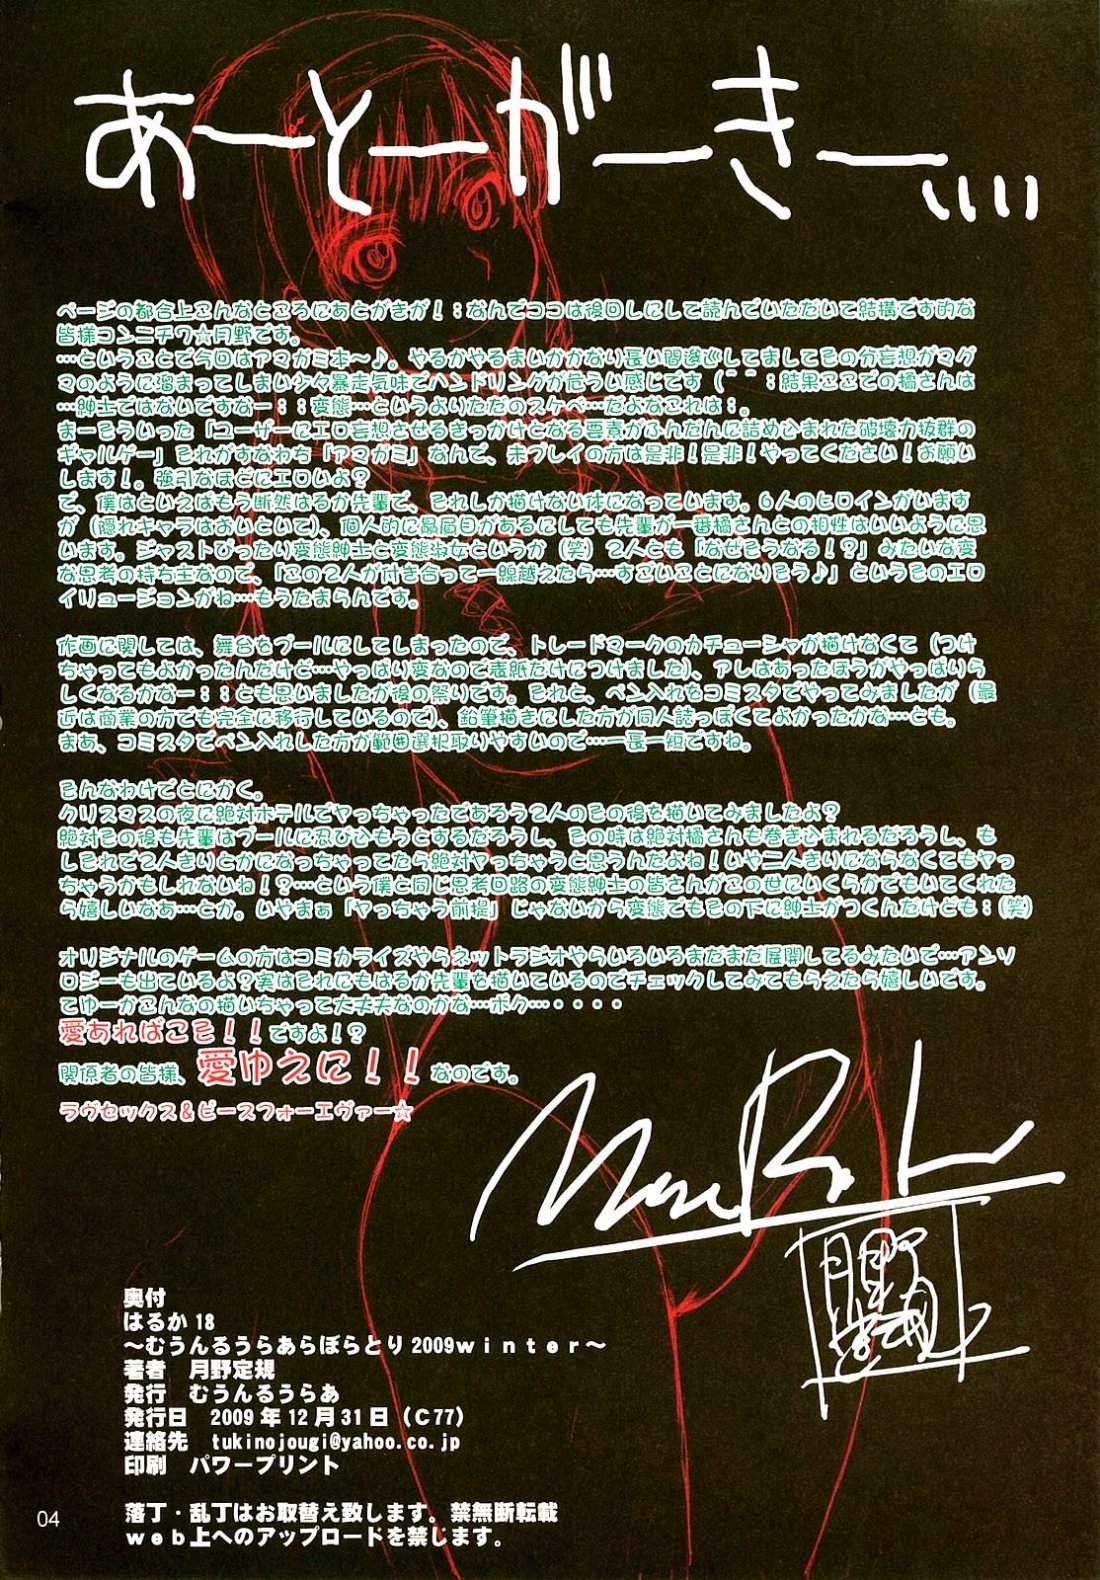 あーとーがーきー、、、、、
ページの都合上こんなところにあとがきが！；なんでココは後回しにして読んでいただいて結構です的な
皆様コンニチワ☆月野です。
…ということで今回はアマガミ本〜♪。やるかやるまいかかなり長い間逡巡してましてその分妄想がマグ
マのように溜まってしまい少々暴走気味でハンドリングが危うい感じです（＾＾；結果ここでの橘さんは
…紳士ではないですなー；；変態…というよりただのスケベ…だよなこれは；。
まーそういった「ユーザーにエロ妄想させるきっかけとなる要素がふんだんに詰め込まれた破壊力抜群の
ギャルゲー」それがすなわち「アマガミ」なんで、未プレイの方は是非！是非！やってください！お願い
します！。強引なほどにエロいよ？
で、僕はといえばもう断然はるか先輩で、それしか描けない体になっています。６人のヒロインがいます
が（隠れキャラはおいといて）、個人的に贔屓目があるにしても先輩が一番橘さんとの相性はいいように思
います。ジャストぴったり変態紳士と変態淑女というか（笑）２人とも「なぜそうなる！？」みたいな変
な思考の持ち主なので、「この２人が付き合って一線越えたら…すごいことになりそう♪」というそのエロ
イリュージョンがね…もうたまらんです。
作画に関しては、舞台をプールにしてしまったので、トレードマークのカチューシャが描けなくて（つけ
ちゃってもよかったんだけど…やっぱり変なので表紙だけにつけました）、アレはあったほうがやっぱいら
しくなるかなー；；とも思いましたが後の祭りです。それと、ペン入れをコミスタでやってみましたが（最
近は商業の方でも完全に移行しているので）、鉛筆描きにした方が同人誌っぽくてよかったかな…とも。
まあ、コミスタでペン入れした方が範囲選択取りやすいので…一長一短ですね。
そんなわけでとにかく。
クリスマスの夜に絶対ホテルでヤっちゃったであろう２人のその後を描いてみましたよ？
絶対その後も先輩はプールに忍び込もうとするだろうし、その時は絶対橘さんも巻き込まれるだろうし、も
しそれで２人きりとかになっちゃってたら絶対ヤっちゃうと思うんだよね！いや二人きりにならなくてもヤっ
ちゃうかもしれないね！？…という僕と同じ思考回路の変態紳士の皆さんがこの世にいくらかでもいてくれた
ら嬉しいなあ…とか。いやまぁ「ヤっちゃう前提」じゃないから変態でもその下に紳士がつくんだけども；（笑）
オリジナルのゲームの方はコミカライズやらネットラジオやらいろいろまだまだ展開してるみたいで…アンソ
ロジーも出ているよ？実はそれにもはるか先輩を描いているのでチェックしてみてもらえたら嬉しいです。
てゆーかこんなの描いちゃって大丈夫なのかな…ボク…・・・・
愛あればこそ！！ですよ！？
関係者の皆様、愛ゆえに！！なのです。
ラヴセックス＆ピースフォーエヴァー☆
月野
奥付
はるか18
〜むうんるうらあらぼらとり2009winter〜
著者　月野定規
発行　むうんるうらあ
発行日　2009年12月31日（C77）
連絡先　tukinojougi@yahoo.co.jp
印刷　パワープリント
落丁・乱丁はお取替え致します。禁無断転載
web上へのアップロードを禁じます。
04